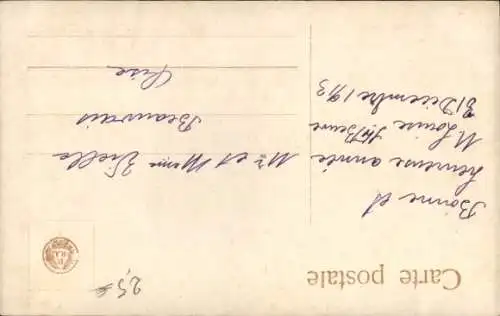 Carte postale
Bonne et
heureuse année
M Louise Ste Beuve
31 Décembre 1913
Mr et Mme Vielle
Beauvais
Oise
2,5